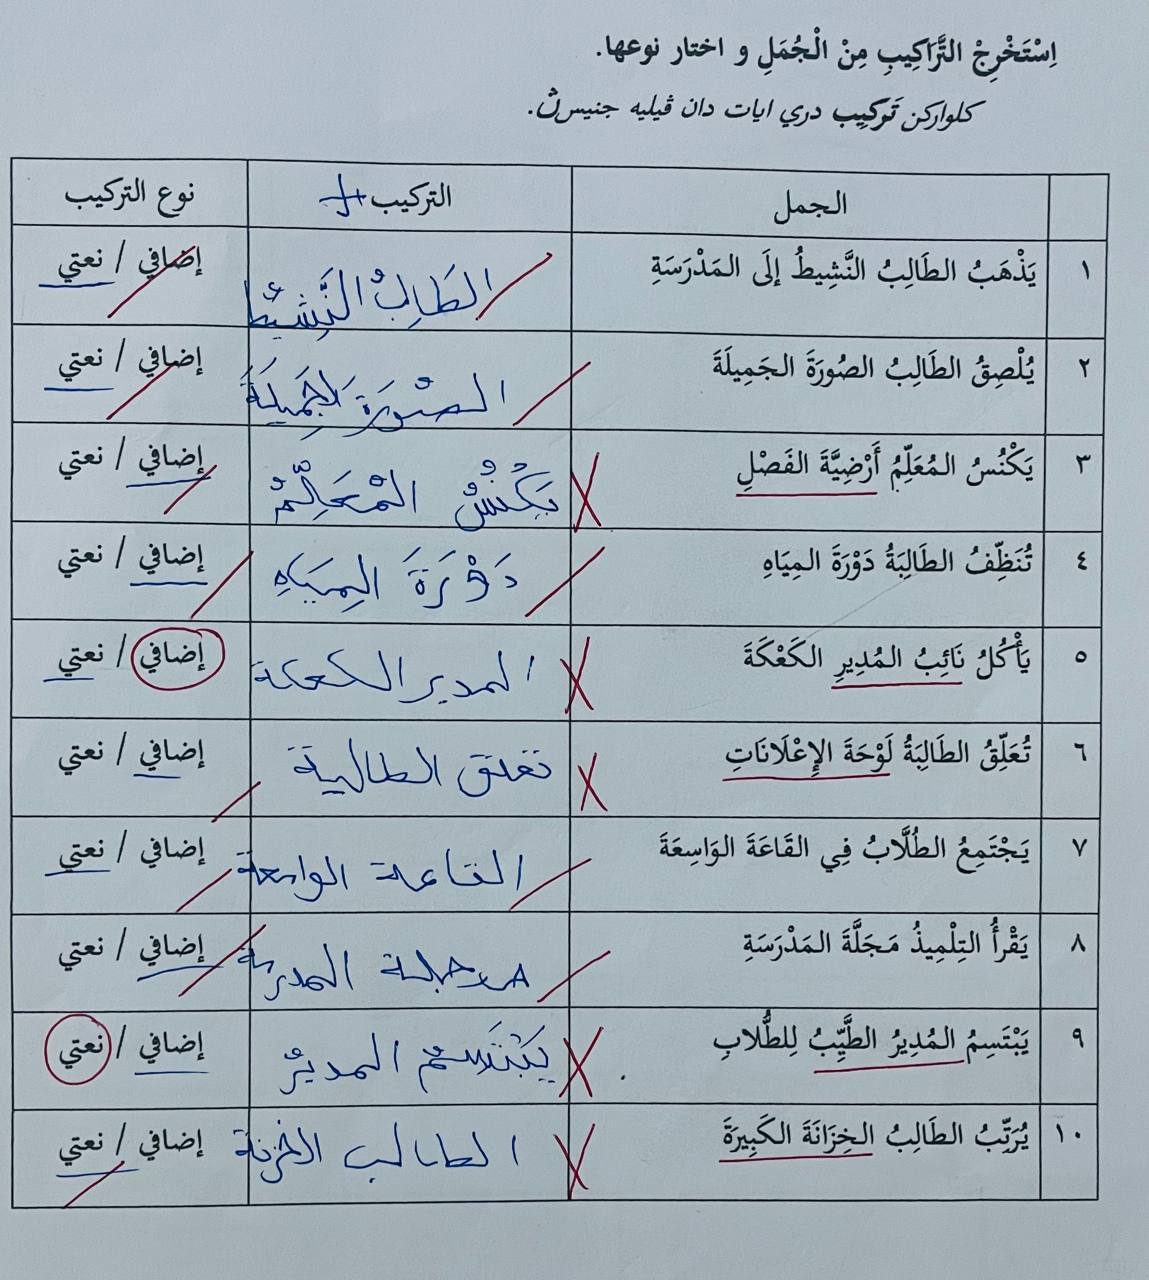 اِسْتَخْرِجْ التَّرَاكِيبِ مِنْ الْجُمَلِ و اختار نوعها.
كلواركن تَركِيب دري ايات دان ڤيليه جنيسڽ.
الجمل التركيب نوع التركيب
١ يَذْهَبُ الطَالِبُ النَّشِيطُ إلَى المَدْرَسَةِ الطَالِبُ النَّشِيْط إضافي / نعتي
٢ يُلْصِقُ الطَالِبُ الصُورَةَ الجَمِيلَةَ الصُوْرَةَ الجَمِيلَةَ إضافي / نعتي
٣ يَكْنُسُ المُعَلِّمُ أَرْضِيَّةَ الفَصْلِ يَكْنُسُ المُعَلِّمُ إضافي / نعتي
٤ تُنَظِّفُ الطَالِبَةُ دَوْرَةَ المِيَاهِ دَوْرَةَ المِيَاهِ إضافي / نعتي
٥ يَأْكُلُ نَائِبُ المُدِيرِ الكَعْكَةَ المدير الكعكة إضافي / نعتي
٦ تُعَلِّقُ الطَالِبَةُ لَوْحَةَ الإِعْلَانَاتِ تعلق الطالبة إضافي / نعتي
٧ يَجْتَمِعُ الطُلَّابُ فِي القَاعَةَ الوَاسِعَةَ القاعة الواسعة إضافي / نعتي
٨ يَقْرأُ التِلْمِيذُ مَجَلَّةَ المَدْرَسَةِ المدرسة إضافي / نعتي
٩ يَبْتَسِمُ المُدِيرُ الطَّيِّبُ لِلطُّلابِ يَبْتَسِمُ المديرُ إضافي / نعتي
١٠ يُرَتِّبُ الطَالِبُ الخِزَانَةَ الكَبِيرَةَ الطالب الخزنة إضافي / نعتي